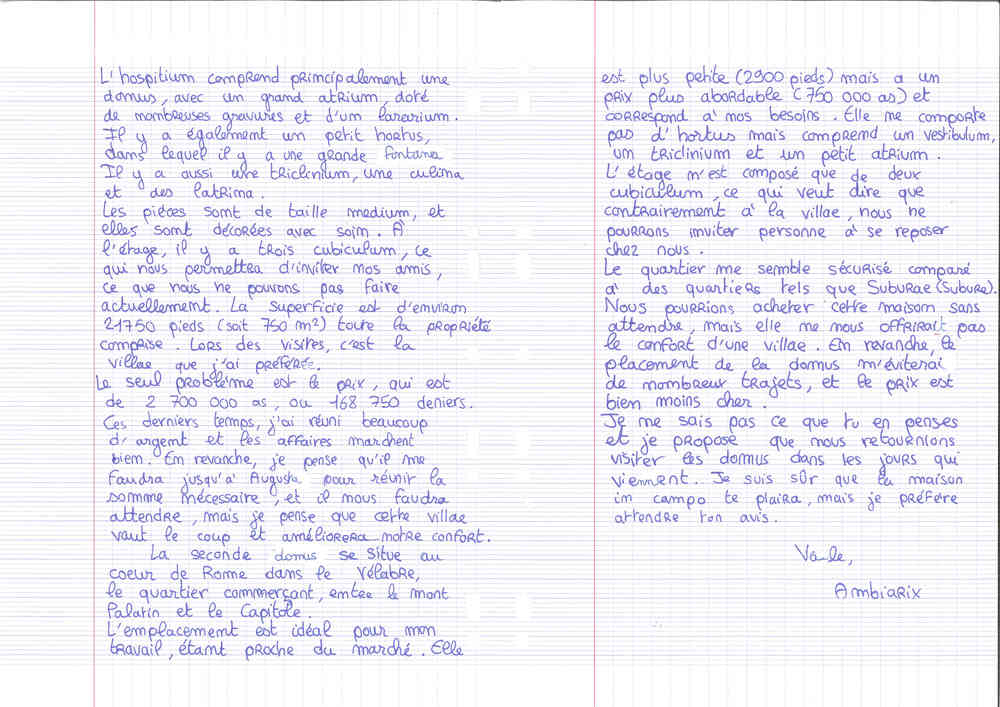 L'hospitium comprend principalement une
domus, avec un grand atrium, doté
de nombreuses gravures et d'un lararium.
Il y a également un petit hortus,
dans lequel il y a une grande fontana
Il y a aussi une triclinium, une culina
et des latrina.
Les pièces sont de taille medium, et
elles sont décorées avec soin. À
l'étage, il y a trois cubiculum, ce
qui nous permettra d'inviter nos amis,
ce que nous ne pouvons pas faire
actuellement. La superficie est d'environ
21750 pieds (soit 750 m²) toute la propriété
comprise. Lors des visites, c'est la
villae que j'ai préférée.
Le seul problème est le prix, qui est
de 2 700 000 as, ou 168 750 deniers.
Ces derniers temps, j'ai réuni beaucoup
d'argent et les affaires marchent
bien. En revanche, je pense qu'il me
faudra jusqu'à Augusta pour réunir la
somme nécessaire, et il nous faudra
attendre, mais je pense que cette villae
vaut le coup et améliorera notre confort.
La seconde domus se situe au
coeur de Rome dans le Vélabre,
le quartier commerçant, entre le mont
Palatin et le Capitole.
L'emplacement est idéal pour mon
travail, étant proche du marché. Elle
est plus petite (2900 pieds) mais a un
prix plus abordable (750 000 as) et
correspond à nos besoins. Elle ne comporte
pas d'hortus mais comprend un vestibulum,
un triclinium et un petit atrium.
L'étage n'est composé que de deux
cubiculum, ce qui veut dire que
contrairement à la villae, nous ne
pourrons inviter personne à se reposer
chez nous.
Le quartier me semble sécurisé comparé
à des quartiers tels que Suburae (Subure).
Nous pourrions acheter cette maison sans
attendre, mais elle ne nous offrirait pas
le confort d'une villae. En revanche, le
placement de la domus m'éviterai
de nombreux trajets, et le prix est
bien moins cher.
Je ne sais pas ce que tu en penses
et je propose que nous retournions
visiter les domus dans les jours qui
viennent. Je suis sûr que la maison
in campo te plaira, mais je préfère
attendre ton avis.
Vale,
Ambiarix